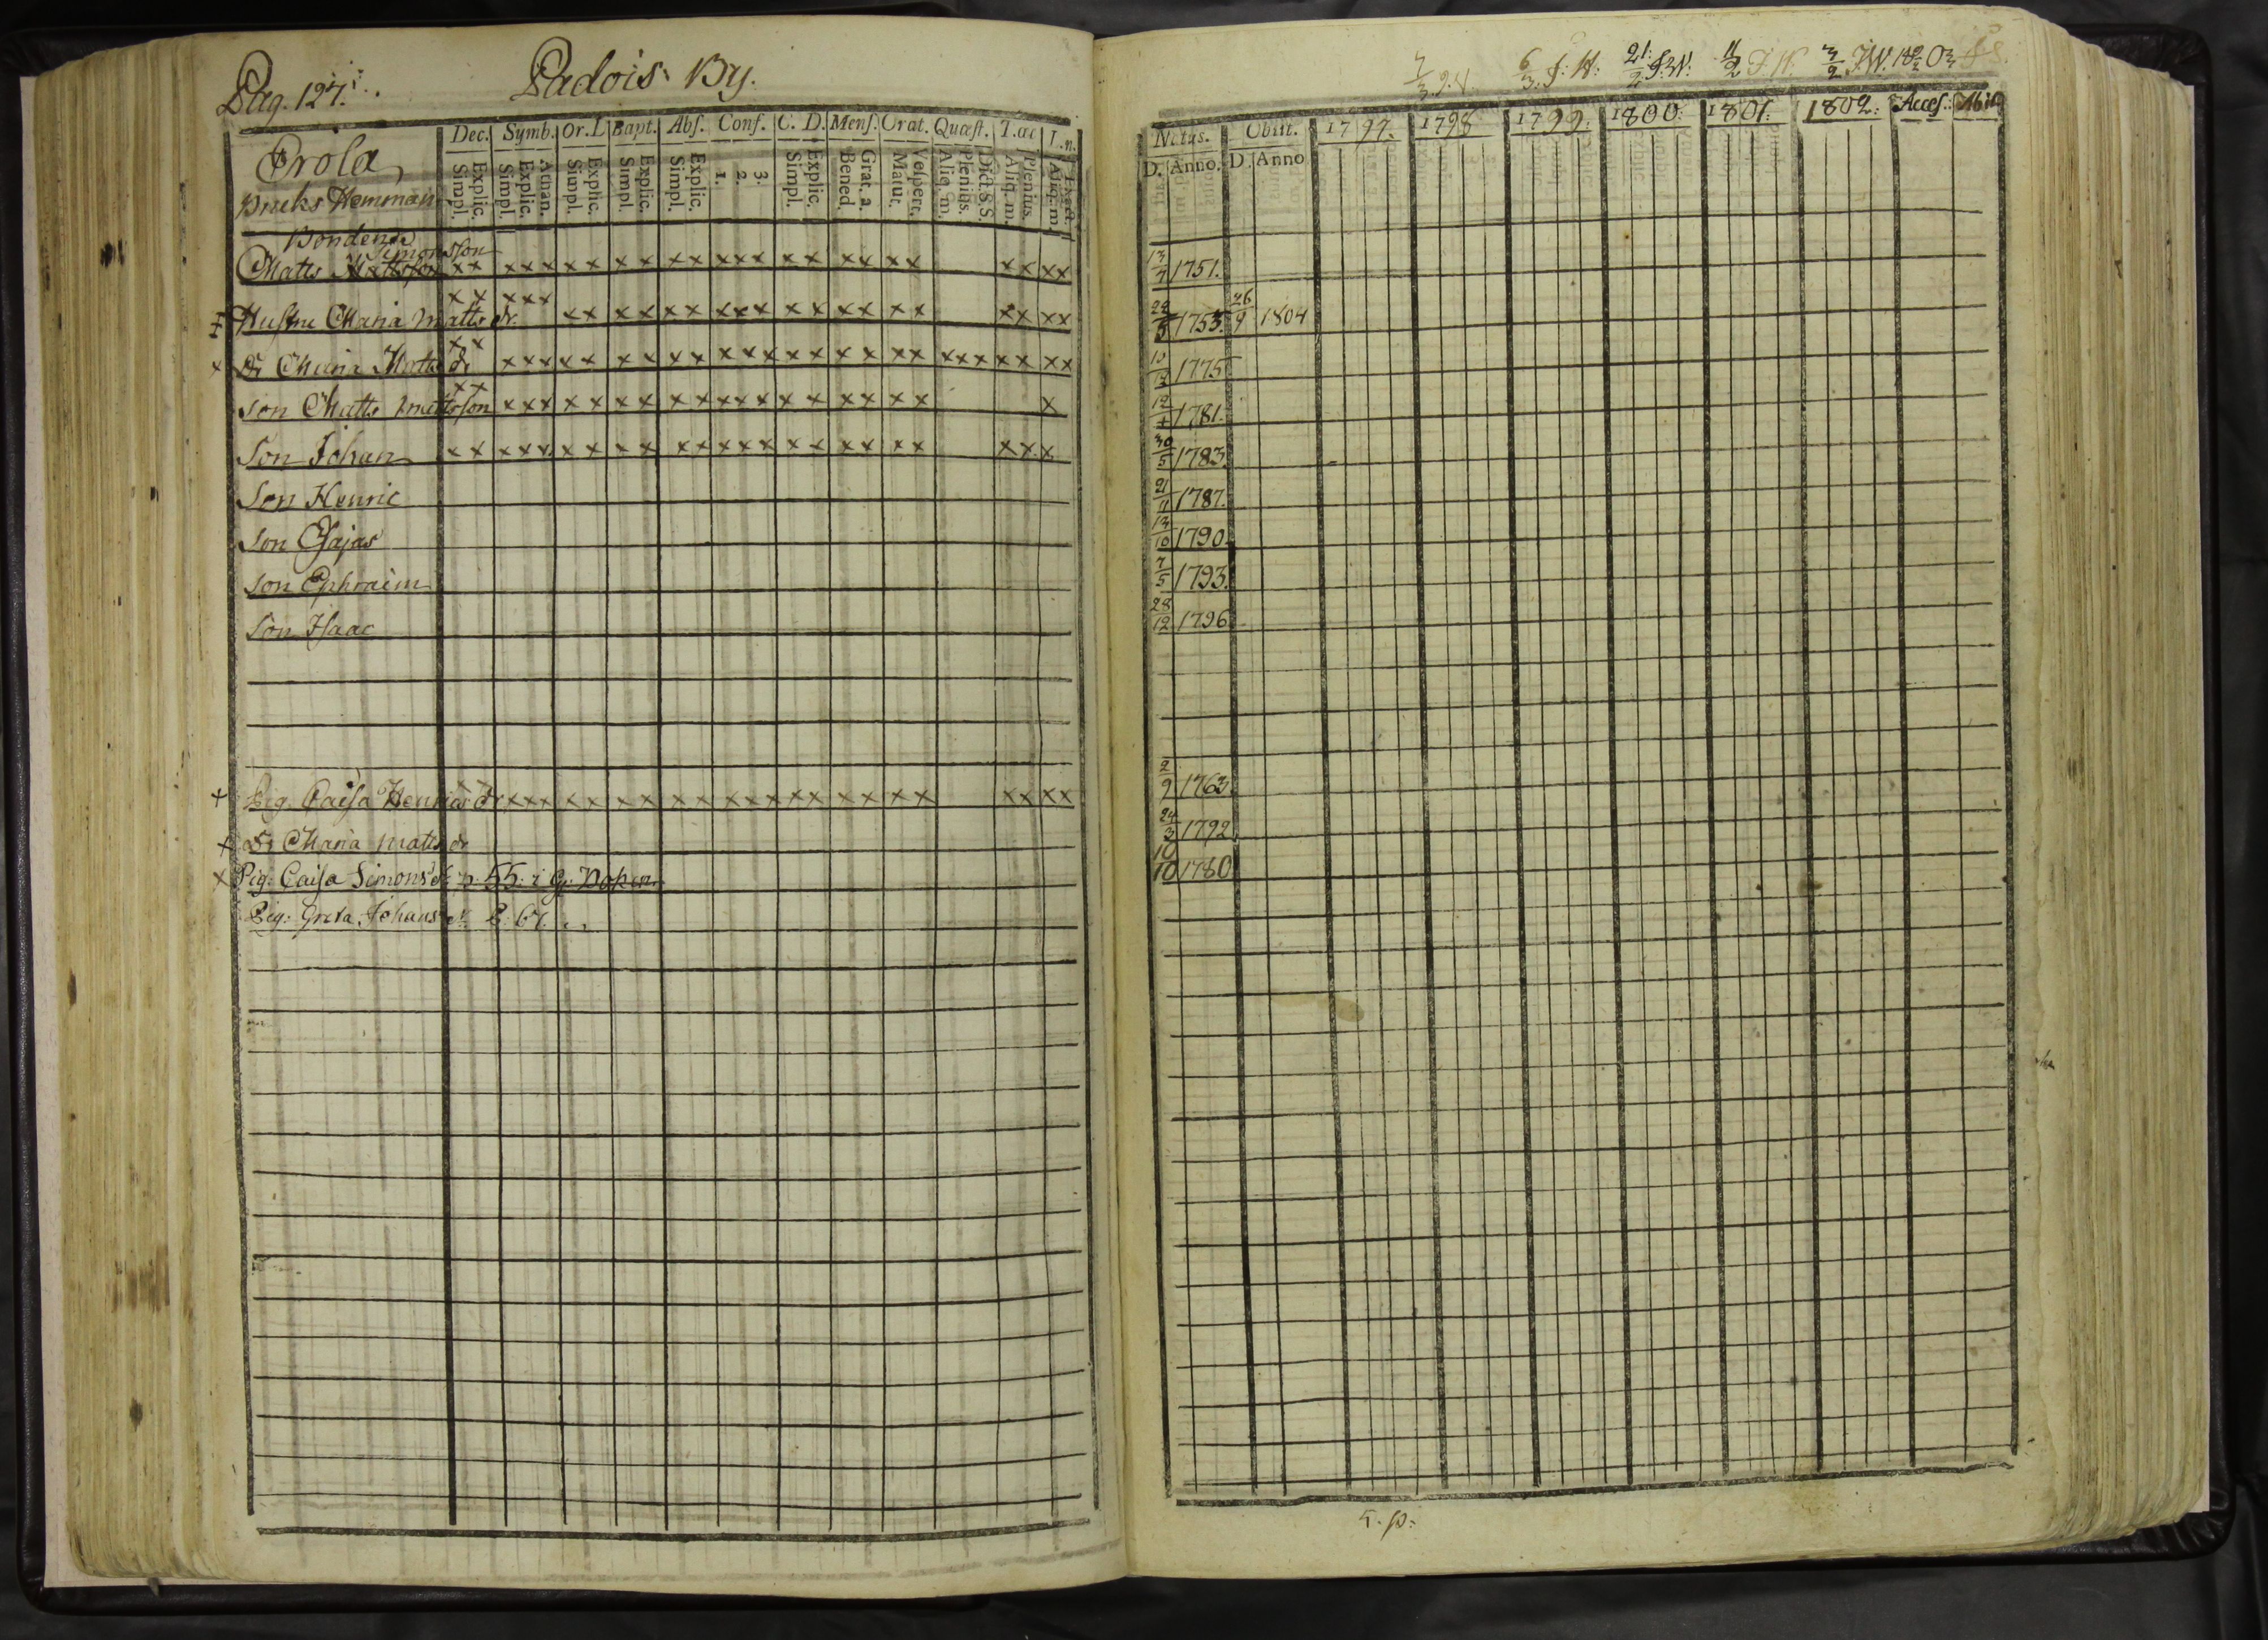 Pag. 127.
Padois By.
Prola
Bruks Hemman
Dec. Symb. Or.D Bapt. Abs. Conf. C. D. Mens. Orat. Quæst. T.ac L.n.
Explic. Simpl. Athan. Explic. Simpl. Explic. Simpl. Explic. Simpl. Explic. Simpl. 3. 2. 1. Explic. Simpl. Grat. a. Bened. Vesper. Matut. Dict. S.S. Plenius. Aliq. m. Plenius. Aliq. m. Exact. Aliq. m.
Bonden
Simonsson
Matts Mattsson xx xxx xx xx xx xxx xx xx xx xx xx
Hustru Maria Matts dr. xx xxx xx xx xx xxx xx xx xx xx xx
Dr Maria Matts dr xx xxx xx xx xx xxx xx xx xx xxx xx xx
Son Matts Mattsson xx xxx xx xx xx xxx xx xx xx x
Son Johan xx xxx xx xx xx xxx xx xx xx xx x
Son Henric
Son Esajas
Son Ephraim
Son Isaac
+ Pig. Caisa Henrics dr xx xxx xx xx xx xxx xx xx xx xx xx
+ Dr Maria Matts dr
x Pig: Caisa Simons dr p. 55: i
Pig: Greta Johans dr P. 67.
7/3 6/3 J: W: 21/2 J:W: 11/2 J W. 3/2 J.W. 1802
Natus. Obiit. 1797. 1798 1799. 1800. 1801. 1802. Acces. Abit.
D. Anno. D. Anno
13/7 1751.
1753. 26/9 1804
10/12 1775
12/1 1781.
30/5 1783.
21/11 1787.
13/10 1790
7/5 1793.
28/12 1796
2/9 1763.
24/3 1792.
10/10 1780